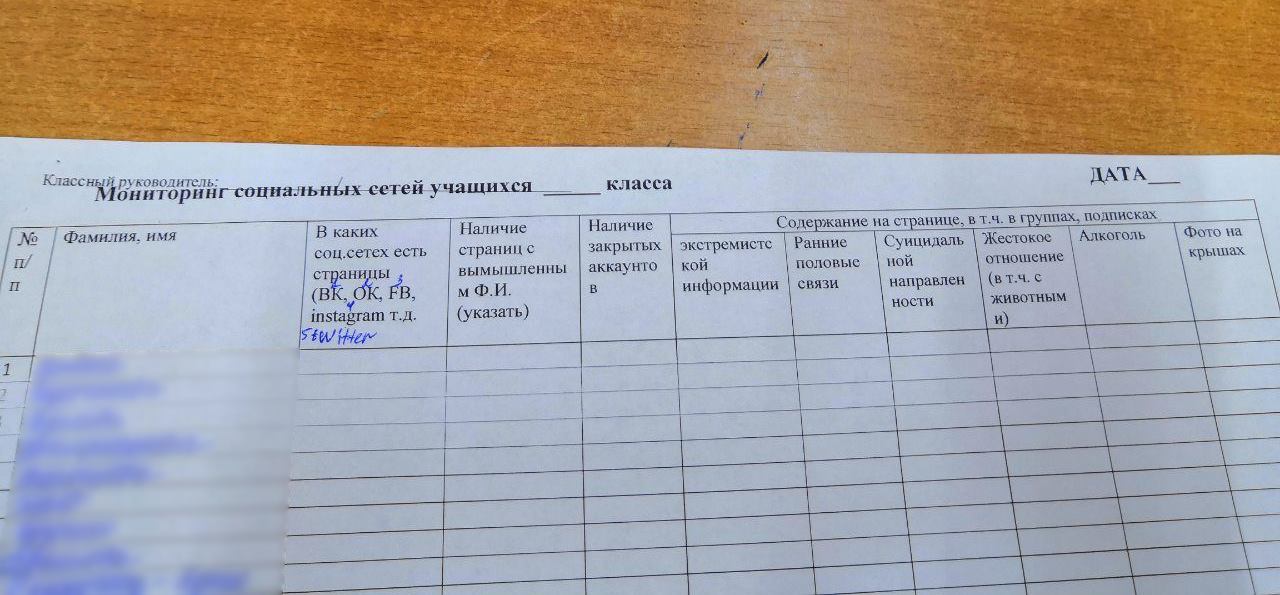 Классный руководитель:
Мониторинг социальных сетей учащихся ______ класса
ДАТА___
№
п/
п
Фамилия, имя
В каких
соц.сетех есть
страницы
(ВК, ОК, FB,
instagram т.д.
5 twitter
Наличие
страниц с
вымышленны
м Ф.И.
(указать)
Наличие
закрытых
аккаунто
в
Содержание на странице, в т.ч. в группах, подписках
экстремистс
кой
информации
Ранние
половые
связи
Суицидаль
ной
направлен
ности
Жестокое
отношение
(в т.ч. с
животным
и)
Алкоголь
Фото на
крышах
1
2
3